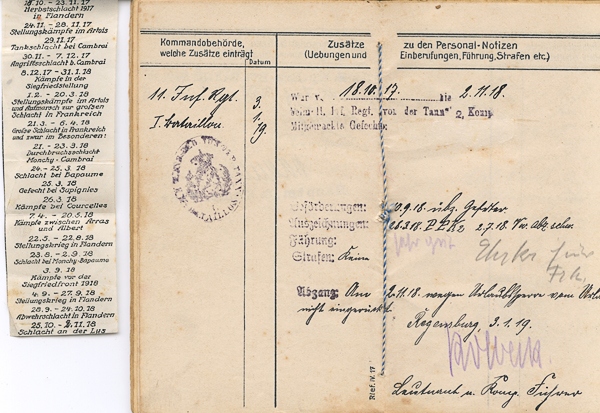 18.10. - 23.11.17
Herbstschlacht 1917
in Flandern
24.11. - 28.11.17
Stellungskämpfe im Artois
29.11.17
Tankschlacht bei Cambrai
30.11. - 7.12.17
Angriffsschlacht b. Cambrai
8.12.17 - 31.1.18
Kämpfe in der
Siegfriedstellung
1.2. - 20.3.18
Stellungskämpfe im Artois
und Aufmarsch zur großen
Schlacht in Frankreich
21.3. - 6.4.18
Große Schlacht in Frankreich
und zwar im Besonderen:
21. - 23.3.18
Durchbruchsschlacht
Monchy - Cambrai
24. - 25.3.18
Schlacht bei Bapaume
25.3.18
Gefecht bei Sapignies
26.3.18
Kämpfe bei Courcelles
7.4. - 20.5.18
Kämpfe zwischen Arras
und Albert
22.5. - 22.8.18
Stellungskrieg in Flandern
23.8. - 2.9.18
Schlacht bei Monchy-Bapaume
3.9.18
Kämpfe vor der
Siegfriedfront 1918
4.9. - 27.9.18
Stellungskrieg in Flandern
28.9. - 24.10.18
Abwehrschlacht in Flandern
25.10. - 2.11.18
Schlacht an der Lys
Kommandobehörde,
welche Zusätze einträgt
Datum
Zusätze zu den Personal-Notizen
(Uebungen und Einberufungen, Führung, Strafen etc.)
11. Inf. Rgt.
I. Bataillon
3.
1.
19
War v. 18.10.17. bis 2.11.18.
beim 11. Inf. Regt. "von der Tann" 2. Komp.
Mitgemachte Gefechte:
Beförderungen: 20.9.18. übz. Gefreiter
Auszeichnungen: 28.3.18. E.K.2 2.7.18. Vw. Abz. schw.
Führung: sehr gut
Strafen: Keine
Abgang: Am 2.11.18 wegen Urlaubsperre vom Urlaub
nicht eingerückt
Regensburg, 3.1.19.
Leutnant u. Komp. Führer
Rief. N. 17